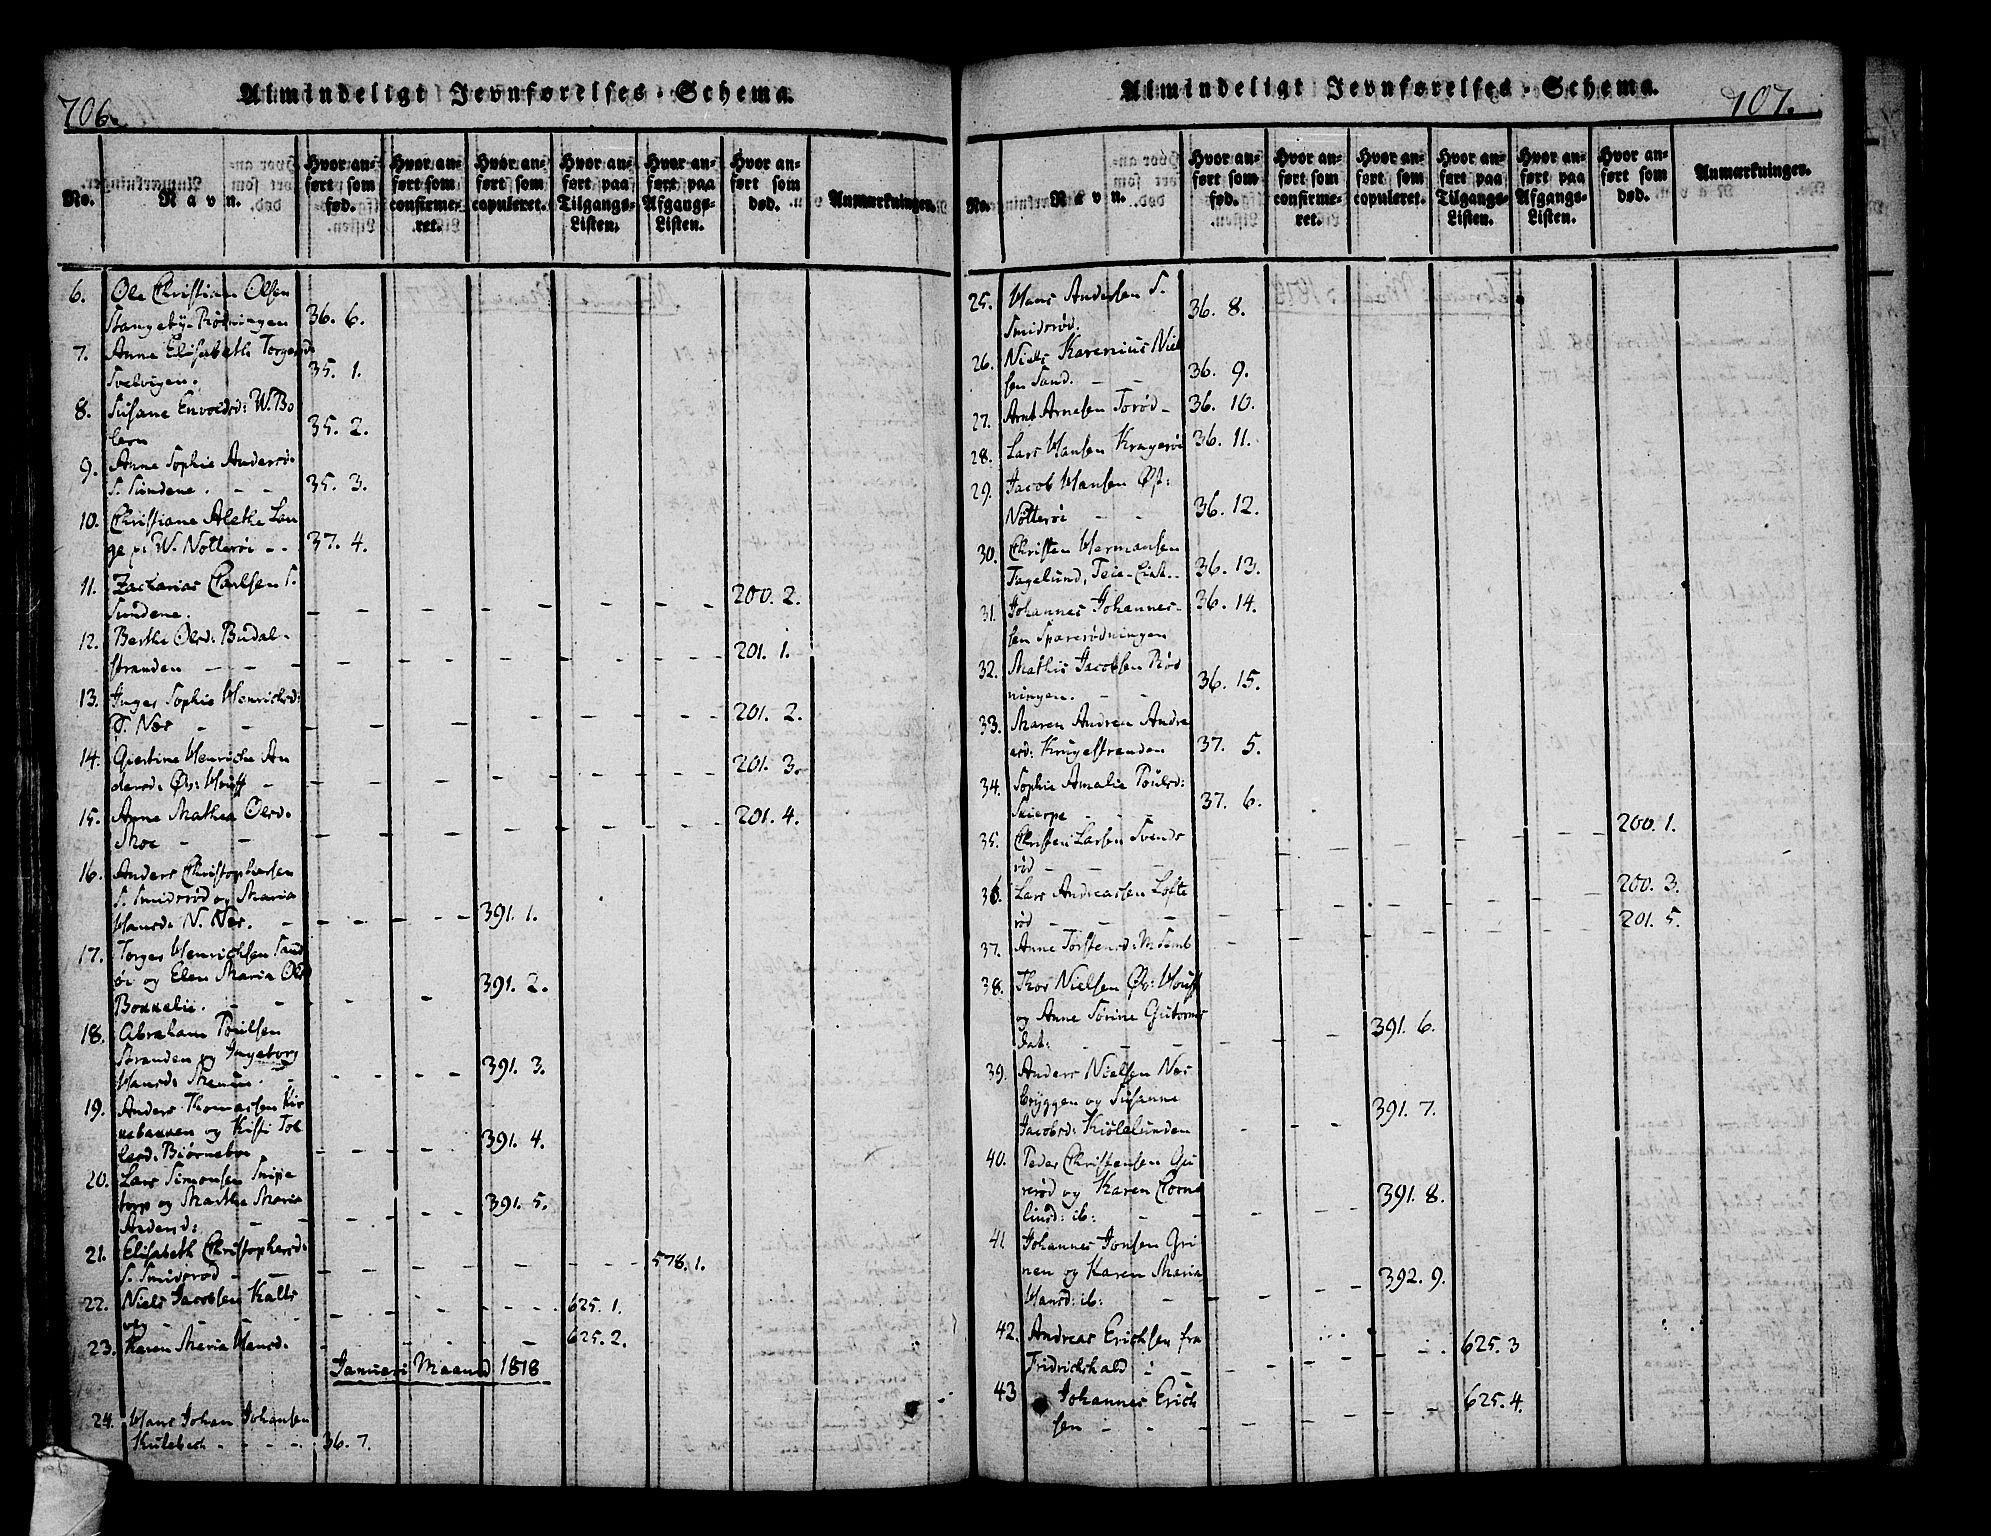 706.
Almindeligt Jevnførelses-Schema.
No.
Navn.
Hvor anført som fød.
Hvor anført som confirmeret.
Hvor anført som copuleret.
Hvor anført paa Tilgangs-Listen.
Hvor anført paa Afgangs-Listen.
Hvor anført som død.
Anmærkninger.
6. Ole Christian Olsen
Stangeby-Rødningen 36. 6.
7. Anne Elisabeth Torgersd:
Svelvigen. 35. 1.
8. Susane Envoldsd: W. Bo
lern 35. 2.
9. Anne Sophie Andersd:
S. Sundene. - - 35. 3.
10. Christiane Alethe Lan
ge p: W. Nøtterøi - - 37. 4.
11. Zacharias Carlsen S.
Sundene. 200. 2.
12. Berthe Olsd: Budal-
stranden 201. 1.
13. Inger Sophie Henrichsd:
Nes 201. 2.
14. Giertine Henriche An
dersd: Øv: Houff 201. 3.
15. Anne Mathea Olsd.
Skoe 201. 4.
16. Anders Christophersen
S. Smidsrød og Maria
Hansd: N. Nes. 391. 1.
17. Torger Henrichsen Sand
øi og Elen Maria Ols
391. 2.
18. Abraham Poulsen
Stranden og Ingeborg
Hansd: 391. 3.
19. Anders Thomassen Kir
kebakken og Kisti Tol
lersd. Biørnebo 391. 4.
20. Lars Simonsen Snipe
torp og Marthe Maria
Andersd: 391. 5.
21. Elisabeth Christophersd:
S. Smidsrød 578. 1.
22. Niels Jacobsen Kalls
veg 625. 1.
23. Karen Maria Hansd. 625. 2.
Januari Maaned 1818
24. Hans Johan Johansen
Kulebech 36. 7.
707.
Almindeligt Jevnførelses-Schema.
No.
Navn.
Hvor anført som fød.
Hvor anført som confirmeret.
Hvor anført som copuleret.
Hvor anført paa Tilgangs-Listen.
Hvor anført paa Afgangs-Listen.
Hvor anført som død.
Anmærkninger.
25. Hans Andersen S.
Smidsrød. 36. 8.
26. Niels Karenius Niel
sen Sand. - - 36. 9.
27. Arnt Arnesen Torød - 36. 10.
28. Lars Hansen Kragerøi 36. 11.
29. Jacob Hansen Øst:
Nøtterøi 36. 12.
30. Christen Hermansen
Fugelund, Teie- 36. 13.
31. Johannes Johannes-
sen Sparerødningen 36. 14.
32. Mathis Jacobsen Rød
ningen. 36. 15.
33. Maren Andrea Andre
asd: Krugestranden 37. 5.
34. Sophie Amalie Poulsd:
Skierpe 37. 6.
35. Christen Larsen Svends
rød 200. 1.
36. Lars Andreassen Lofte
rød 200. 3.
37. Anne Torstensd: 201. 5.
38. Thor Nielsen Øv: Houff
og Anne Sørine Gutorms
dat: 391. 6.
39. Anders Nielsen Nes
bryggen og Susanne
Jacobsd: Kiølelunden 391. 7.
40. Peder Christensen Gu
rerød og Karen Corne
liusd: ib: 391. 8.
41 Johannes Jonsen Gri
nen og Karen Maria
Hansd: ib: 392. 9.
42. Andreas Erichsen fra
Fridrichshald 625. 3
43 Johannes Erich
sen 625. 4.